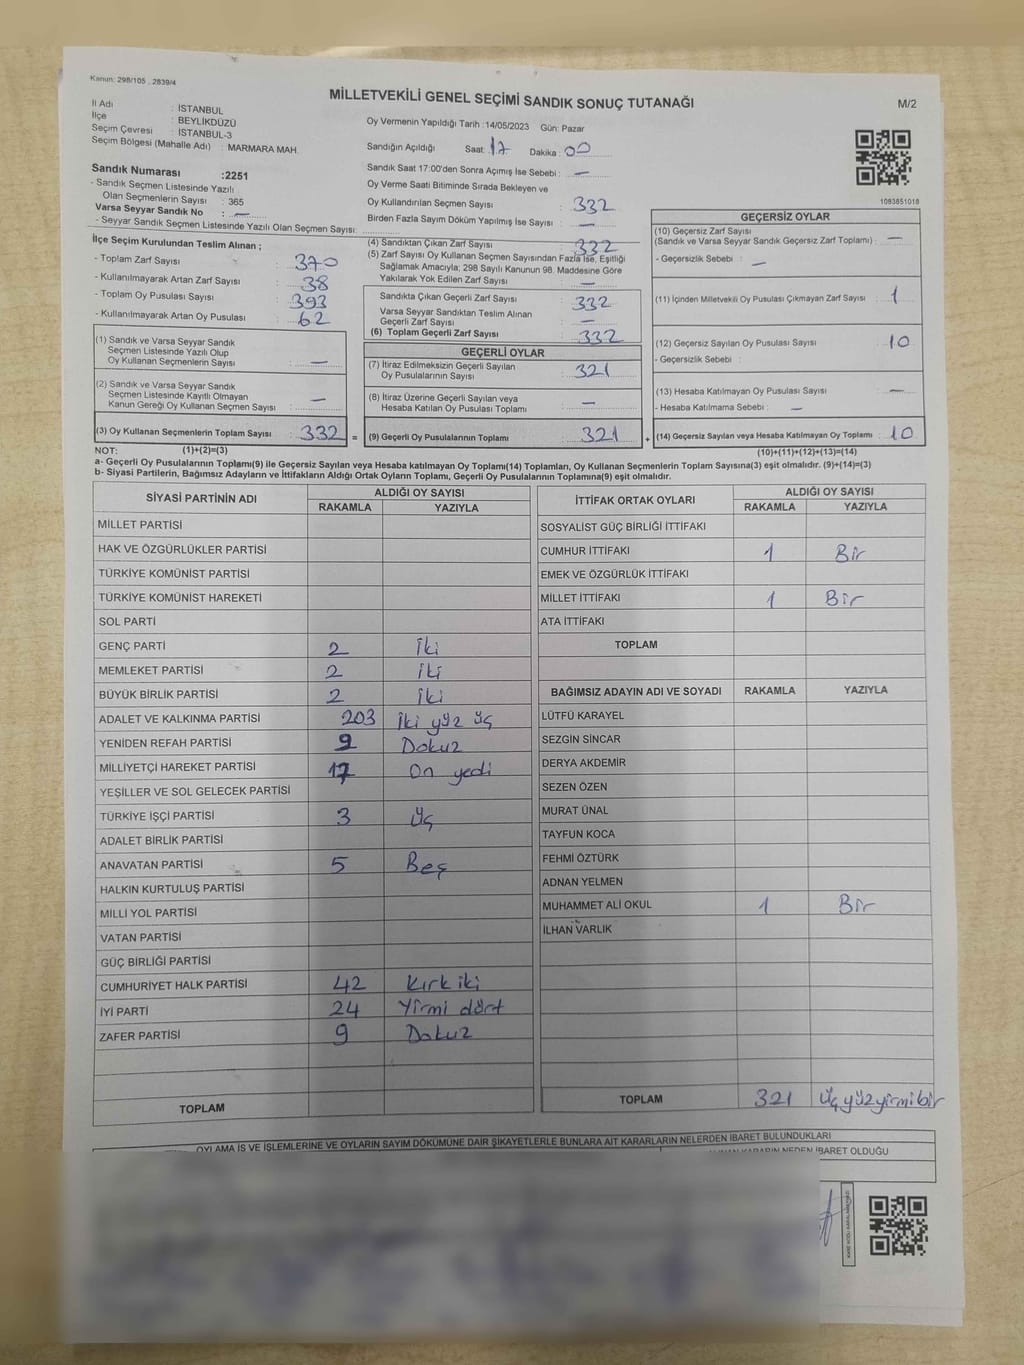 Kanun: 298/105 . 2839/4
MİLLETVEKİLİ GENEL SEÇİMİ SANDIK SONUÇ TUTANAĞI
M/2
İl Adı : İSTANBUL
İlçe : BEYLİKDÜZÜ
Seçim Çevresi : İSTANBUL-3
Seçim Bölgesi (Mahalle Adı) : MARMARA MAH.
Oy Vermenin Yapıldığı Tarih :14/05/2023 Gün: Pazar
Sandığın Açıldığı Saat: 17 Dakika : 00
Sandık Numarası :2251
- Sandık Seçmen Listesinde Yazılı
Olan Seçmenlerin Sayısı : 365
Varsa Seyyar Sandık No : —
- Seyyar Sandık Seçmen Listesinde Yazılı Olan Seçmen Sayısı:
Sandık Saat 17:00'den Sonra Açımış İse Sebebi : —
Oy Verme Saati Bitiminde Sırada Bekleyen ve
Oy Kullandırılan Seçmen Sayısı : 332
Birden Fazla Sayım Döküm Yapılmış İse Sayısı : —
1093851018
İlçe Seçim Kurulundan Teslim Alınan ;
- Toplam Zarf Sayısı : 370
- Kullanılmayarak Artan Zarf Sayısı : 38
- Toplam Oy Pusulası Sayısı : 393
- Kullanılmayarak Artan Oy Pusulası : 62
(1) Sandık ve Varsa Seyyar Sandık
Seçmen Listesinde Yazılı Olup
Oy Kullanan Seçmenlerin Sayısı : —
(2) Sandık ve Varsa Seyyar Sandık
Seçmen Listesinde Kayıtlı Olmayan
Kanun Gereği Oy Kullanan Seçmen Sayısı : —
(3) Oy Kullanan Seçmenlerin Toplam Sayısı : 332 =
(4) Sandıktan Çıkan Zarf Sayısı : 332
(5) Zarf Sayısı Oy Kullanan Seçmen Sayısından Fazla İse, Eşitliği
Sağlamak Amacıyla; 298 Sayılı Kanunun 98. Maddesine Göre
Yakılarak Yok Edilen Zarf Sayısı : —
Sandıkta Çıkan Geçerli Zarf Sayısı : 332
Varsa Seyyar Sandıktan Teslim Alınan
Geçerli Zarf Sayısı : —
(6) Toplam Geçerli Zarf Sayısı : 332
GEÇERLİ OYLAR
(7) İtiraz Edilmeksizin Geçerli Sayılan
Oy Pusulalarının Sayısı : 321
(8) İtiraz Üzerine Geçerli Sayılan veya
Hesaba Katılan Oy Pusulası Toplamı : —
(9) Geçerli Oy Pusulalarının Toplamı : 321 +
GEÇERSİZ OYLAR
(10) Geçersiz Zarf Sayısı
(Sandık ve Varsa Seyyar Sandık Geçersiz Zarf Toplamı) : —
- Geçersizlik Sebebi : —
(11) İçinden Milletvekili Oy Pusulası Çıkmayan Zarf Sayısı : 1
(12) Geçersiz Sayılan Oy Pusulası Sayısı : 10
- Geçersizlik Sebebi :
(13) Hesaba Katılmayan Oy Pusulası Sayısı : —
- Hesaba Katılmama Sebebi : —
(14) Geçersiz Sayılan veya Hesaba Katılmayan Oy Toplamı : 10
NOT: (1)+(2)=(3) (10)+(11)+(12)+(13)=(14)
a- Geçerli Oy Pusulalarının Toplamı(9) ile Geçersiz Sayılan veya Hesaba katılmayan Oy Toplamı(14) Toplamları, Oy Kullanan Seçmenlerin Toplam Sayısına(3) eşit olmalıdır. (9)+(14)=(3)
b- Siyasi Partilerin, Bağımsız Adayların ve İttifakların Aldığı Ortak Oyların Toplamı, Geçerli Oy Pusulalarının Toplamına(9) eşit olmalıdır.
SİYASİ PARTİNİN ADI ALDIĞI OY SAYISI
RAKAMLA YAZIYLA
MİLLET PARTİSİ
HAK VE ÖZGÜRLÜKLER PARTİSİ
TÜRKİYE KOMÜNİST PARTİSİ
TÜRKİYE KOMÜNİST HAREKETİ
SOL PARTİ
GENÇ PARTİ 2 İki
MEMLEKET PARTİSİ 2 İki
BÜYÜK BİRLİK PARTİSİ 2 İki
ADALET VE KALKINMA PARTİSİ 203 İki yüz üç
YENİDEN REFAH PARTİSİ 9 Dokuz
MİLLİYETÇİ HAREKET PARTİSİ 17 On yedi
YEŞİLLER VE SOL GELECEK PARTİSİ
TÜRKİYE İŞÇİ PARTİSİ 3 Üç
ADALET BİRLİK PARTİSİ
ANAVATAN PARTİSİ 5 Beş
HALKIN KURTULUŞ PARTİSİ
MİLLİ YOL PARTİSİ
VATAN PARTİSİ
GÜÇ BİRLİĞİ PARTİSİ
CUMHURİYET HALK PARTİSİ 42 Kırk iki
İYİ PARTİ 24 Yirmi dört
ZAFER PARTİSİ 9 Dokuz
TOPLAM
İTTİFAK ORTAK OYLARI ALDIĞI OY SAYISI
RAKAMLA YAZIYLA
SOSYALİST GÜÇ BİRLİĞİ İTTİFAKI
CUMHUR İTTİFAKI 1 Bir
EMEK VE ÖZGÜRLÜK İTTİFAKI
MİLLET İTTİFAKI 1 Bir
ATA İTTİFAKI
TOPLAM
BAĞIMSIZ ADAYIN ADI VE SOYADI RAKAMLA YAZIYLA
LÜTFÜ KARAYEL
SEZGİN SİNCAR
DERYA AKDEMİR
SEZEN ÖZEN
MURAT ÜNAL
TAYFUN KOCA
FEHMİ ÖZTÜRK
ADNAN YELMEN
MUHAMMET ALİ OKUL 1 Bir
İLHAN VARLIK
TOPLAM 321 Üçyüzyirmibir
OYLAMA İŞ VE İŞLEMLERİNE VE OYLARIN SAYIM DÖKÜMÜNE DAİR ŞİKAYETLERLE BUNLARA AİT KARARLARIN NELERDEN İBARET BULUNDUKLARI
KARARIN NEDEN İBARET OLDUĞU